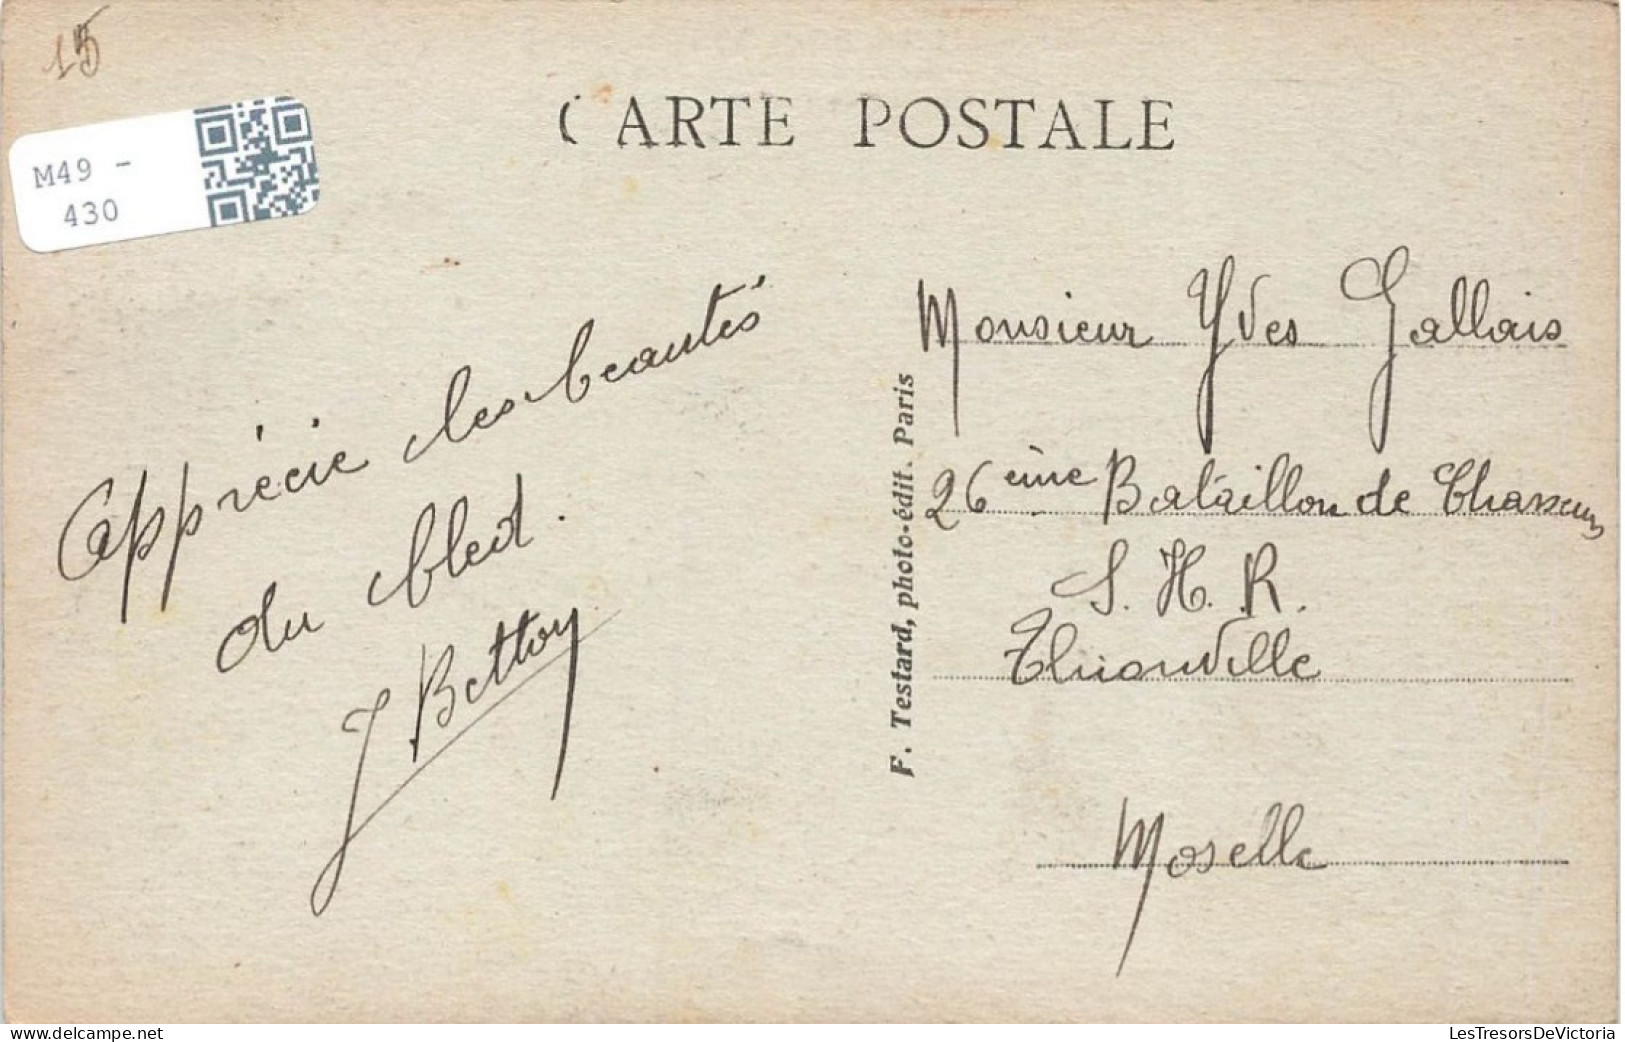 15
M49 -
430
CARTE POSTALE
Apprécie les beautés
du bled.
J Bettoy
F. Testard, photo-édit. Paris
Monsieur Yves Gallais
26ème Bataillon de Chasseurs
S. H. R.
Thionville
Moselle
www.delcampe.net
LesTresorsDeVictoria